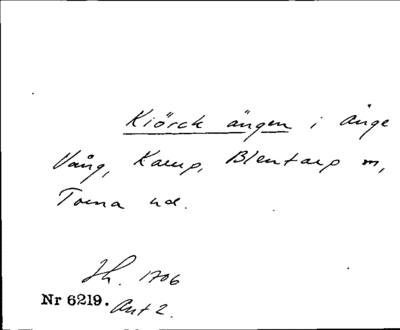 Kiörck ängen i Ånge
Vång, Karup, Blentarp m,
Torna hd.
Jh. 1706
Nr 6219. Ant 2.